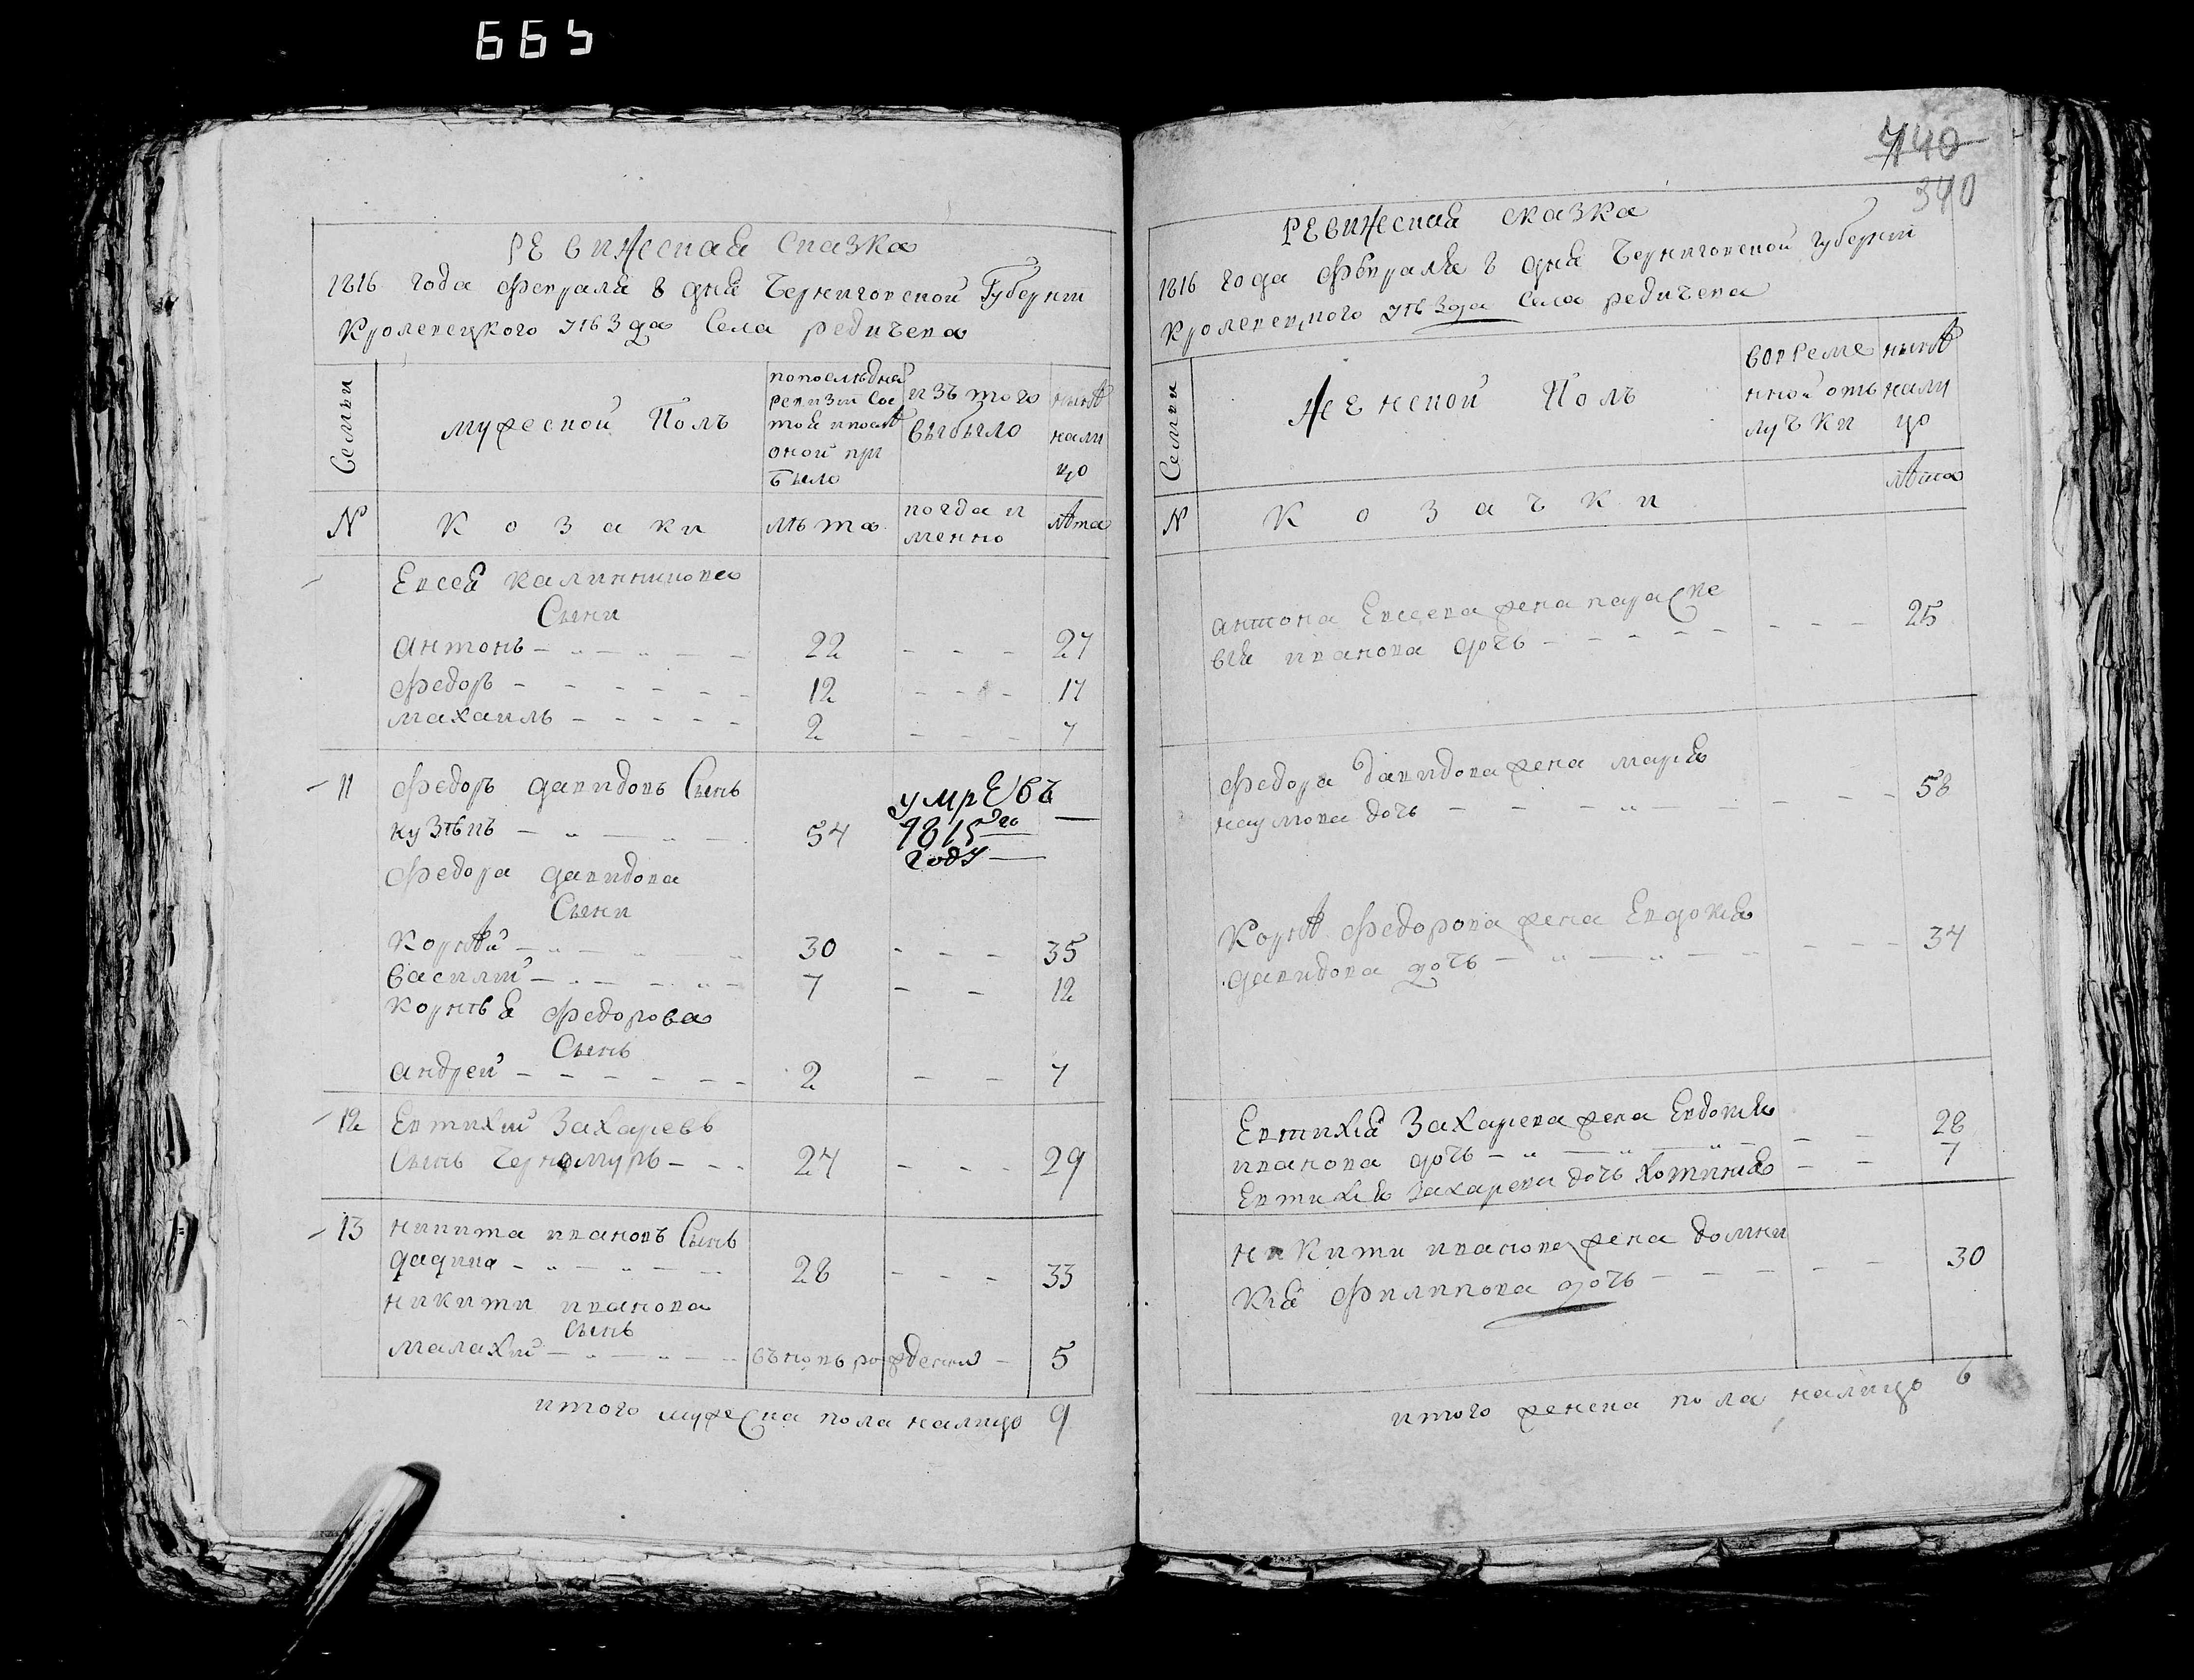 665
РЕвижеская Сказка
1816 года Февраля 8 дня Черниговской Губернии
Кролевецкого уѣзда Села редичева
Семьи
мужеской Полъ
попослѣдней
ревизии сос
тояло и послѣ
оной при
было
изъ того
выбыло
нынѣ
нали
цо
N
К о з а к и
лѣта
когда и
менно
лѣта
Евсея калинникова
Сыни
антонъ - " - " - - 22 - - - 27
федоръ - - - - - - 12 - - - 17
махаилъ - - - - - 2 - - - 7
11 федоръ давидовъ Сынъ
кузѣвъ - " - " - 54 умрЕвъ
1815го
году
федора давидова
Сыни
Корнѣй - " - " - " 30 - - - 35
василий - " - - " - 7 - - 12
корнѣя федорова
Сынъ
андрей - - - - - - 2 - - 7
12 Евтихий Захаревъ
Сынъ Черномуръ - - - 24 - - - 29
13 никита ивановъ Сынъ
дадика - " - " - - 28 - - - 33
никити иванова
сынъ
малахий - " - " - - въновь рождений - 5
итого мужеска пола налицо 9
7140
340
РЕвижеская сказка
1816 года Февраля 8 дня Черниговской губернии
Кролевецкого уѣзда Села редичева
Семьи
женской Полъ
вовреме
нной отъ
лучки
нынѣ
нали
цо
N
К о з а ч к и
лѣта
антона Евсеева жена параске
вия иванова дочь - - - - - - - - 25
федора давидова жена мария
наумова дочь - - - " - - - - 58
Корнѣя федорова жена Евдокия
давидова дочь - " - " - - - - - 34
Евтихия Захарева жена Евдокия
иванова дочь - " - - " - - - 28
Евтихия Захарева дочь хотиния - - 7
никити иванова жена домни
кия филипова дочь - - - - - - 30
итого женска пола налицо 6